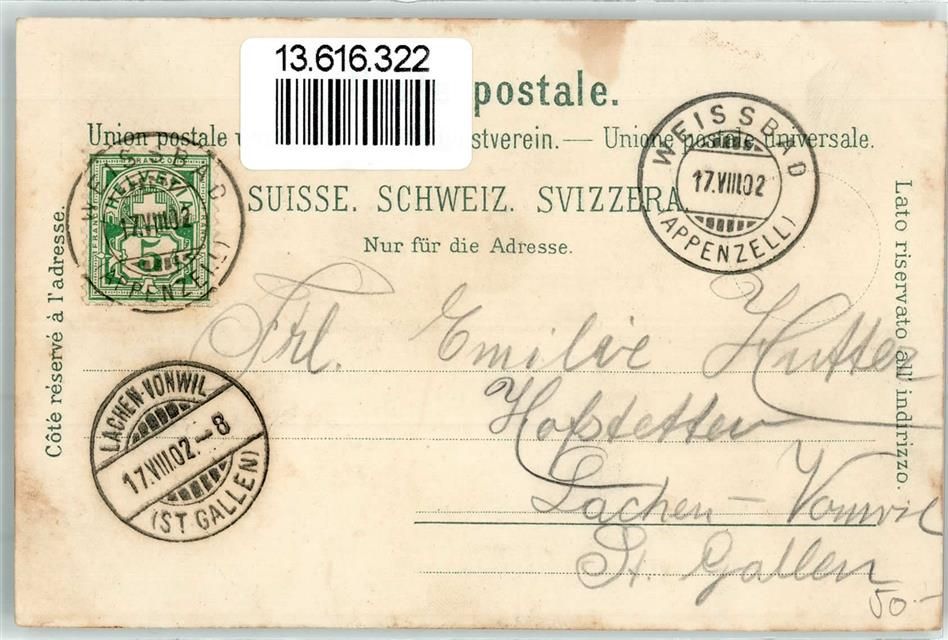 13.616.322
postale.
Union postale stverein. — Unione postale universale.
SUISSE. SCHWEIZ. SVIZZERA.
Nur für die Adresse.
Côté réservé à l'adresse.
Lato riservato all' indirizzo.
HELVETIA
5
WEISSBAD
17.VIII.02
(APPENZELL)
WEISSBAD
17.VIII.02
(APPENZELL)
LACHEN-VONWIL
17.VIII.02.–8
(ST. GALLEN)
Frl. Emilie Hutter
Hofstetten
Lachen – Vonwil
St. Gallen
50.-